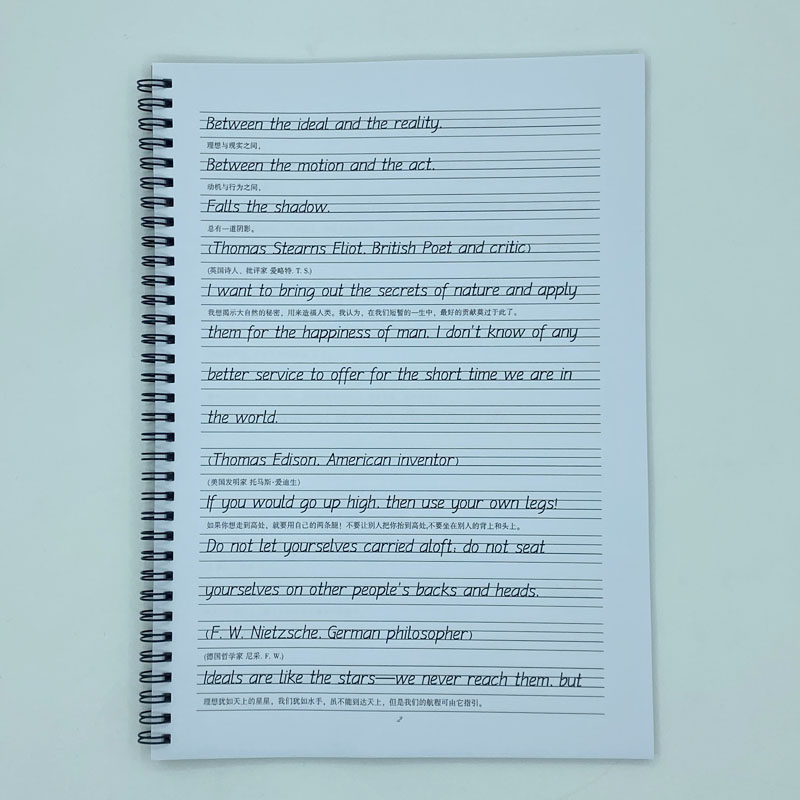 Between the ideal and the reality.
理想与现实之间，
Between the motion and the act.
动机与行为之间，
Falls the shadow.
总有一道阴影。
(Thomas Stearns Eliot. British Poet and critic)
(英国诗人、批评家 爱略特. T. S.)
I want to bring out the secrets of nature and apply
我想揭示大自然的秘密，用来造福人类。我认为，在我们短暂的一生中，最好的贡献莫过于此了。
them for the happiness of man. I don't know of any
better service to offer for the short time we are in
the world.
(Thomas Edison. American inventor)
(美国发明家 托马斯·爱迪生)
If you would go up high, then use your own legs!
如果你想走到高处，就要用自己的两条腿！不要让别人把你抬到高处,不要坐在别人的背上和头上。
Do not let yourselves carried aloft; do not seat
yourselves on other people's backs and heads.
(F. W. Nietzsche. German philosopher)
(德国哲学家 尼采. F. W.)
Ideals are like the stars—we never reach them, but
理想犹如天上的星星，我们犹如水手，虽不能到达天上，但是我们的航程可由它指引。
2